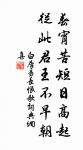 春宵苦短日高起
從此君王不早朝
白居易長恨歌詞典網
真